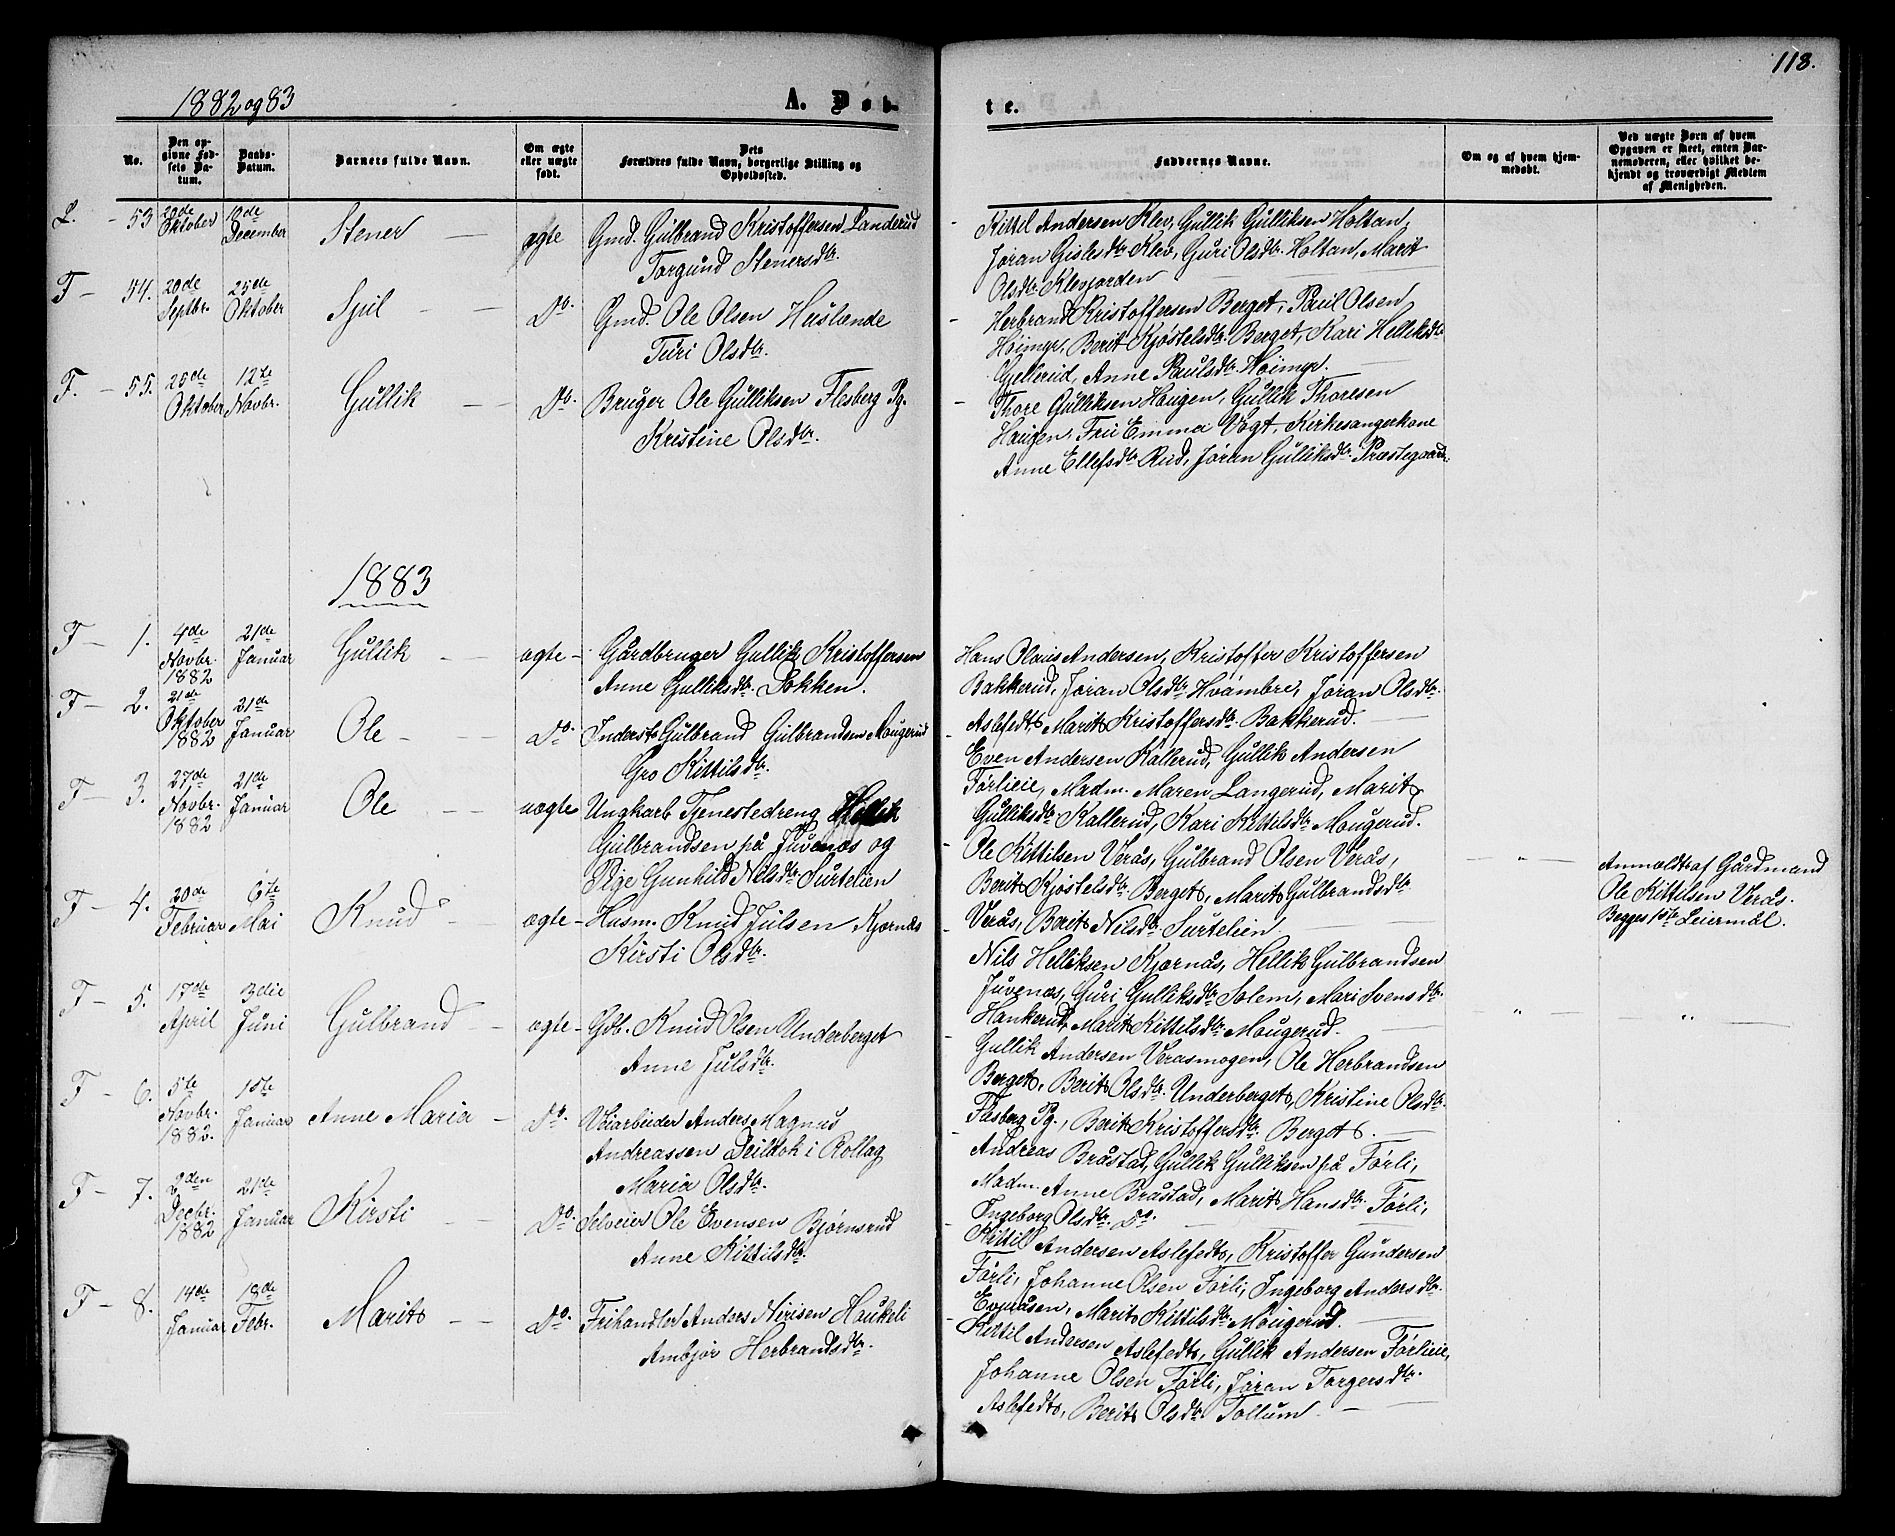 118.
1882 og 83
A. Døb-
te.
No.
Den opgivne Fødsels Datum.
Daabs-Datum.
Barnets fulde Navn.
Om ægte eller uægte født.
Dets Forældres fulde Navn, borgerlige Stilling og Opholdssted.
Faddernes Navne.
Om og af hvem hjemmedøbt.
Ved uægte Børn af hvem Opgaven er skeet, enten Barnemoderen, eller hvilket bekjendt og troværdigt Medlem af Menigheden.
L. - 53 20de Oktober 10de December Stener — ægte Gmd. Gulbrand Kristoffersen Landerud
Torgund Stenersdtr.
Kittil Andersen Klev, Gullik Gulliksen Holtan,
Jøran Gislesdtr Klev, Guri Olsdtr. Holtan, Marit
Olsdtr Klevjorden
F - 54. 20de Septbr. 25de Oktober Spil — Do. Gmd. Ole Olsen Huslænde
Turi Olsdtr.
Herbrand Kristoffersen Berget, Paul Olsen
Høimyr, Berit Kjøstelsdtr. Berget, Kari Helleksdtr
Gjellerud, Anne Paulsdtr Høimyr.
F. - 55. 25de Oktober 12te Novbr. Gullik — Do. Bruger Ole Gulliksen Flesberg Pg.
Kristine Olsdtr.
Thore Gulliksen Haugen, Gullik Thoresen
Haugen, Fru Emma Vogt, Kirkesangerkone
Anne Ellefsdtr Rud, Jøran Gulliksdtr. Præstegaard.
1883
F - 1. 4de Novbr. 1882 21de Januar Gullik — ægte - Gårdbruger Gullik Kristoffersen
Anne Gulliksdtr. Løkken.
Hans Olaus Andersen, Kristoffer Kristoffersen
Bakkerud, Jøran Olsdtr Hvámbre, Jøran Olsdtr.
Aslefedt, Marit Kristoffersdtr. Bakkerud.
F - 2. 21de Oktober 1882 21de Januar Ole — Do. Inderst Gulbrand Gulbrandsen Mougerud
Gro Kittilsdtr.
Even Andersen Kallerud, Gullik Andersen
Førlieie, Madm. Maren Langerud, Marit
Gulliksdtr Kallerud, Kari Kittilsdtr Mougerud.
F - 3. 27de Novbr. 1882 21de Januar Ole — uægte Ungkarl Tjenestedreng Hellik
Gulbrandsen på Juvenæs og
Pige Gunhild Nilsdtr Surtelien
Ole Kittilsen Verås, Gulbrand Olsen Verås,
Berit Kjøstelsdtr. Berget, Marit Gulbrandsdtr
Verås, Berit Nilsdtr Surtelien.
Anmældt af Gårdmand
Ole Kittilsen Verås.
Begges 1ste Leiermål.
F - 4. 20de Februar 6te Mai Knud — ægte - Husm. Knud Julsen Kjørnæs
Kirsti Olsdtr.
Nils Helliksen Kjærnås, Hellik Gulbrandsen
Juvenæs, Guri Gulliksdtr. Solem, Mari Svensdtr.
Hankerud, Marit Kittilsdtr Mougerud.
F - 5. 17de April 3die Juni Gulbrand — ægte - Gbr. Knud Olsen Underberget
Anne Julsdtr.
Gullik Andersen Verasmogen, Ole Herbrandsen
Berget, Berit Olsdtr. Underberget, Kristine Olsdtr.
Flesberg Pg., Berit Kristoffersdtr. Berget.
F - 6. 5te Novbr. 1882. 18te Januar Anne Maria — Do. Veiarbeider Anders Magnus
Andreassen Deildok i Rollag
Maria Olsdtr.
Andreas Bråstad, Gullik Gulliksen på Førli,
Madm. Anne Bråstad, Marit Hansdtr. Førli,
Ingeborg Olsdtr. Do.
F - 7. 2den Decbr. 1882 21de Januar Kirsti — Do. Selveier Ole Evensen Bjørnsrud
Anne Kittilsdtr.
Kittil Andersen Aslefedt, Kristoffer Gundersen
Førli, Johanne Olsen Førli, Ingeborg Andersdtr.
Evjuåsen, Marit Kittilsdtr Mougerud.
F - 8. 14de Januar 18de Febr. Marit — Do. Frihandler Anders Nirisen Haukeli
Ambjør Herbrandsdtr.
Kittil Andersen Aslefedt, Gullik Andersen Førlieie,
Johanne Olsen Førli, Jøran Torgersdtr.
Aslefedt, Berit Olsdtr Tollum.